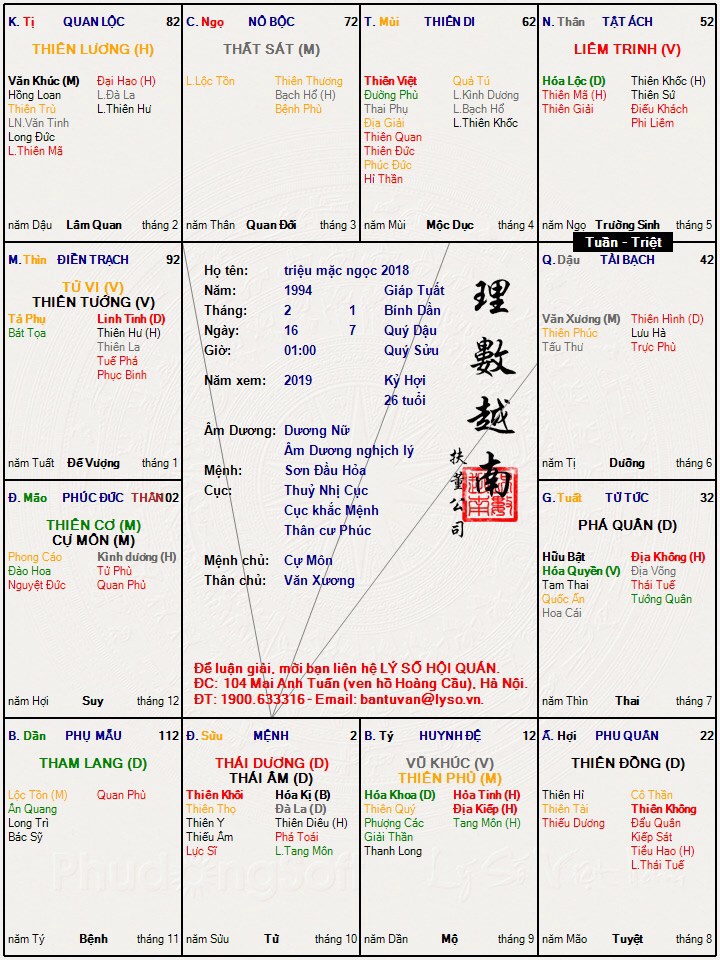 K. Tị QUAN LỘC 82
THIÊN LƯƠNG (H)
Văn Khúc (M) Đại Hao (H)
Hồng Loan L.Đà La
Thiên Trù L.Thiên Hư
LN.Văn Tinh
Long Đức
L.Thiên Mã
năm Dậu Lâm Quan tháng 2
C. Ngọ NÔ BỘC 72
THẤT SÁT (M)
L.Lộc Tồn Thiên Thương
Bạch Hổ (H)
Bệnh Phù
năm Thân Quan Đới tháng 3
T. Mùi THIÊN DI 62
Thiên Việt Quả Tú
Đường Phù L.Kình Dương
Thai Phụ L.Bạch Hổ
Địa Giải L.Thiên Khốc
Thiên Quan
Thiên Đức
Phúc Đức
Hỉ Thần
năm Mùi Mộc Dục tháng 4
N. Thân TẬT ÁCH 52
LIÊM TRINH (V)
Hóa Lộc (D) Thiên Khốc (H)
Thiên Mã (H) Thiên Sứ
Thiên Giải Điếu Khách
Phi Liêm
năm Ngọ Trường Sinh tháng 5
Tuần - Triệt
M. Thìn ĐIỀN TRẠCH 92
TỬ VI (V)
THIÊN TƯỚNG (V)
Tả Phụ Linh Tinh (D)
Bát Tọa Thiên Hư (H)
Thiên La
Tuế Phá
Phục Binh
năm Tuất Đế Vượng tháng 1
Họ tên: triệu mặc ngọc 2018
Năm: 1994 Giáp Tuất
Tháng: 2 1 Bính Dần
Ngày: 16 7 Quý Dậu
Giờ: 01:00 Quý Sửu
Năm xem: 2019 Kỷ Hợi
26 tuổi
Âm Dương: Dương Nữ
Âm Dương nghịch lý
Mệnh: Sơn Đầu Hỏa
Cục: Thuỷ Nhị Cục
Cục khắc Mệnh
Thân cư Phúc
Mệnh chủ: Cự Môn
Thân chủ: Văn Xương
理數越南
扶董公司
Để luận giải, mời bạn liên hệ LÝ SỐ HỘI QUÁN.
ĐC: 104 Mai Anh Tuấn (ven hồ Hoàng Cầu), Hà Nội.
ĐT: 1900.633316 - Email: bantuvan@lyso.vn.
Q. Dậu TÀI BẠCH 42
Văn Xương (M) Thiên Hình (D)
Thiên Phúc Lưu Hà
Tấu Thư Trực Phù
năm Tị Dưỡng tháng 6
Đ. Mão PHÚC ĐỨC THÂN 102
THIÊN CƠ (M)
CỰ MÔN (M)
Phong Cáo Kình dương (H)
Đào Hoa Tử Phù
Nguyệt Đức Quan Phủ
năm Hợi Suy tháng 12
G. Tuất TỬ TỨC 32
PHÁ QUÂN (D)
Hữu Bật Địa Không (H)
Hóa Quyền (V) Địa Võng
Tam Thai Thái Tuế
Quốc Ấn Tướng Quân
Hoa Cái
năm Thìn Thai tháng 7
B. Dần PHỤ MẪU 112
THAM LANG (D)
Lộc Tồn (M) Quan Phù
Ân Quang
Long Trì
Bác Sỹ
năm Tý Bệnh tháng 11
Đ. Sửu MỆNH 2
THÁI DƯƠNG (D)
THÁI ÂM (D)
Thiên Khôi Hóa Kị (B)
Thiên Thọ Đà La (D)
Thiên Y Thiên Diêu (H)
Thiếu Âm Phá Toái
Lực Sĩ L.Tang Môn
năm Sửu Tử tháng 10
B. Tý HUYNH ĐỆ 12
VŨ KHÚC (V)
THIÊN PHỦ (M)
Hóa Khoa (D) Hỏa Tinh (H)
Thiên Quý Địa Kiếp (H)
Phượng Các Tang Môn (H)
Giải Thần
Thanh Long
năm Dần Mộ tháng 9
Ấ. Hợi PHU QUÂN 22
THIÊN ĐỒNG (D)
Thiên Hỉ Cô Thần
Thiên Tài Thiên Không
Thiếu Dương Đẩu Quân
Kiếp Sát
Tiểu Hao (H)
L.Thái Tuế
năm Mão Tuyệt tháng 8